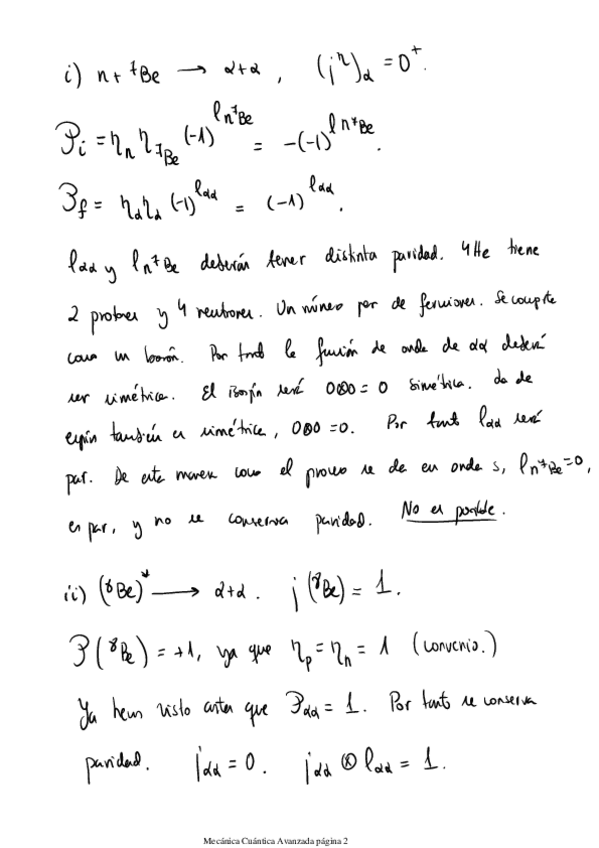 i) n + ⁷Be → α+α , (j^η)_α = 0⁺.
P_i = η_n η_⁷Be (-1)^{l_n⁷Be} = -(-1)^{l_n⁷Be}.
P_f = η_α η_α (-1)^{l_αα} = (-1)^{l_αα}.
l_αα y l_n⁷Be deberán tener distinta paridad. 4He tiene
2 protones y 4 neutrones. Un número par de fermiones. Se comporta
como un bosón. Por tanto la función de onda de αα deberá
ser simétrica. El isospín será 0⊗0=0 simétrica. La de
espín también es simétrica, 0⊗0=0. Por tanto l_αα será
par. De esta manera como el proceso se da en onda s, l_n⁷Be=0,
es par, y no se conserva paridad. No es posible.
ii) (⁸Be)* → α+α. j(⁸Be) = 1.
P(⁸Be) = +1, ya que η_p = η_n = 1 (convenio.)
Ya hemos visto antes que P_αα = 1. Por tanto se conserva
paridad. j_αα = 0. j_αα ⊗ l_αα = 1.
Mecánica Cuántica Avanzada página 2